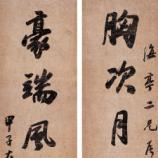 胸次月
海亭二兄屬
豪端風
甲子大